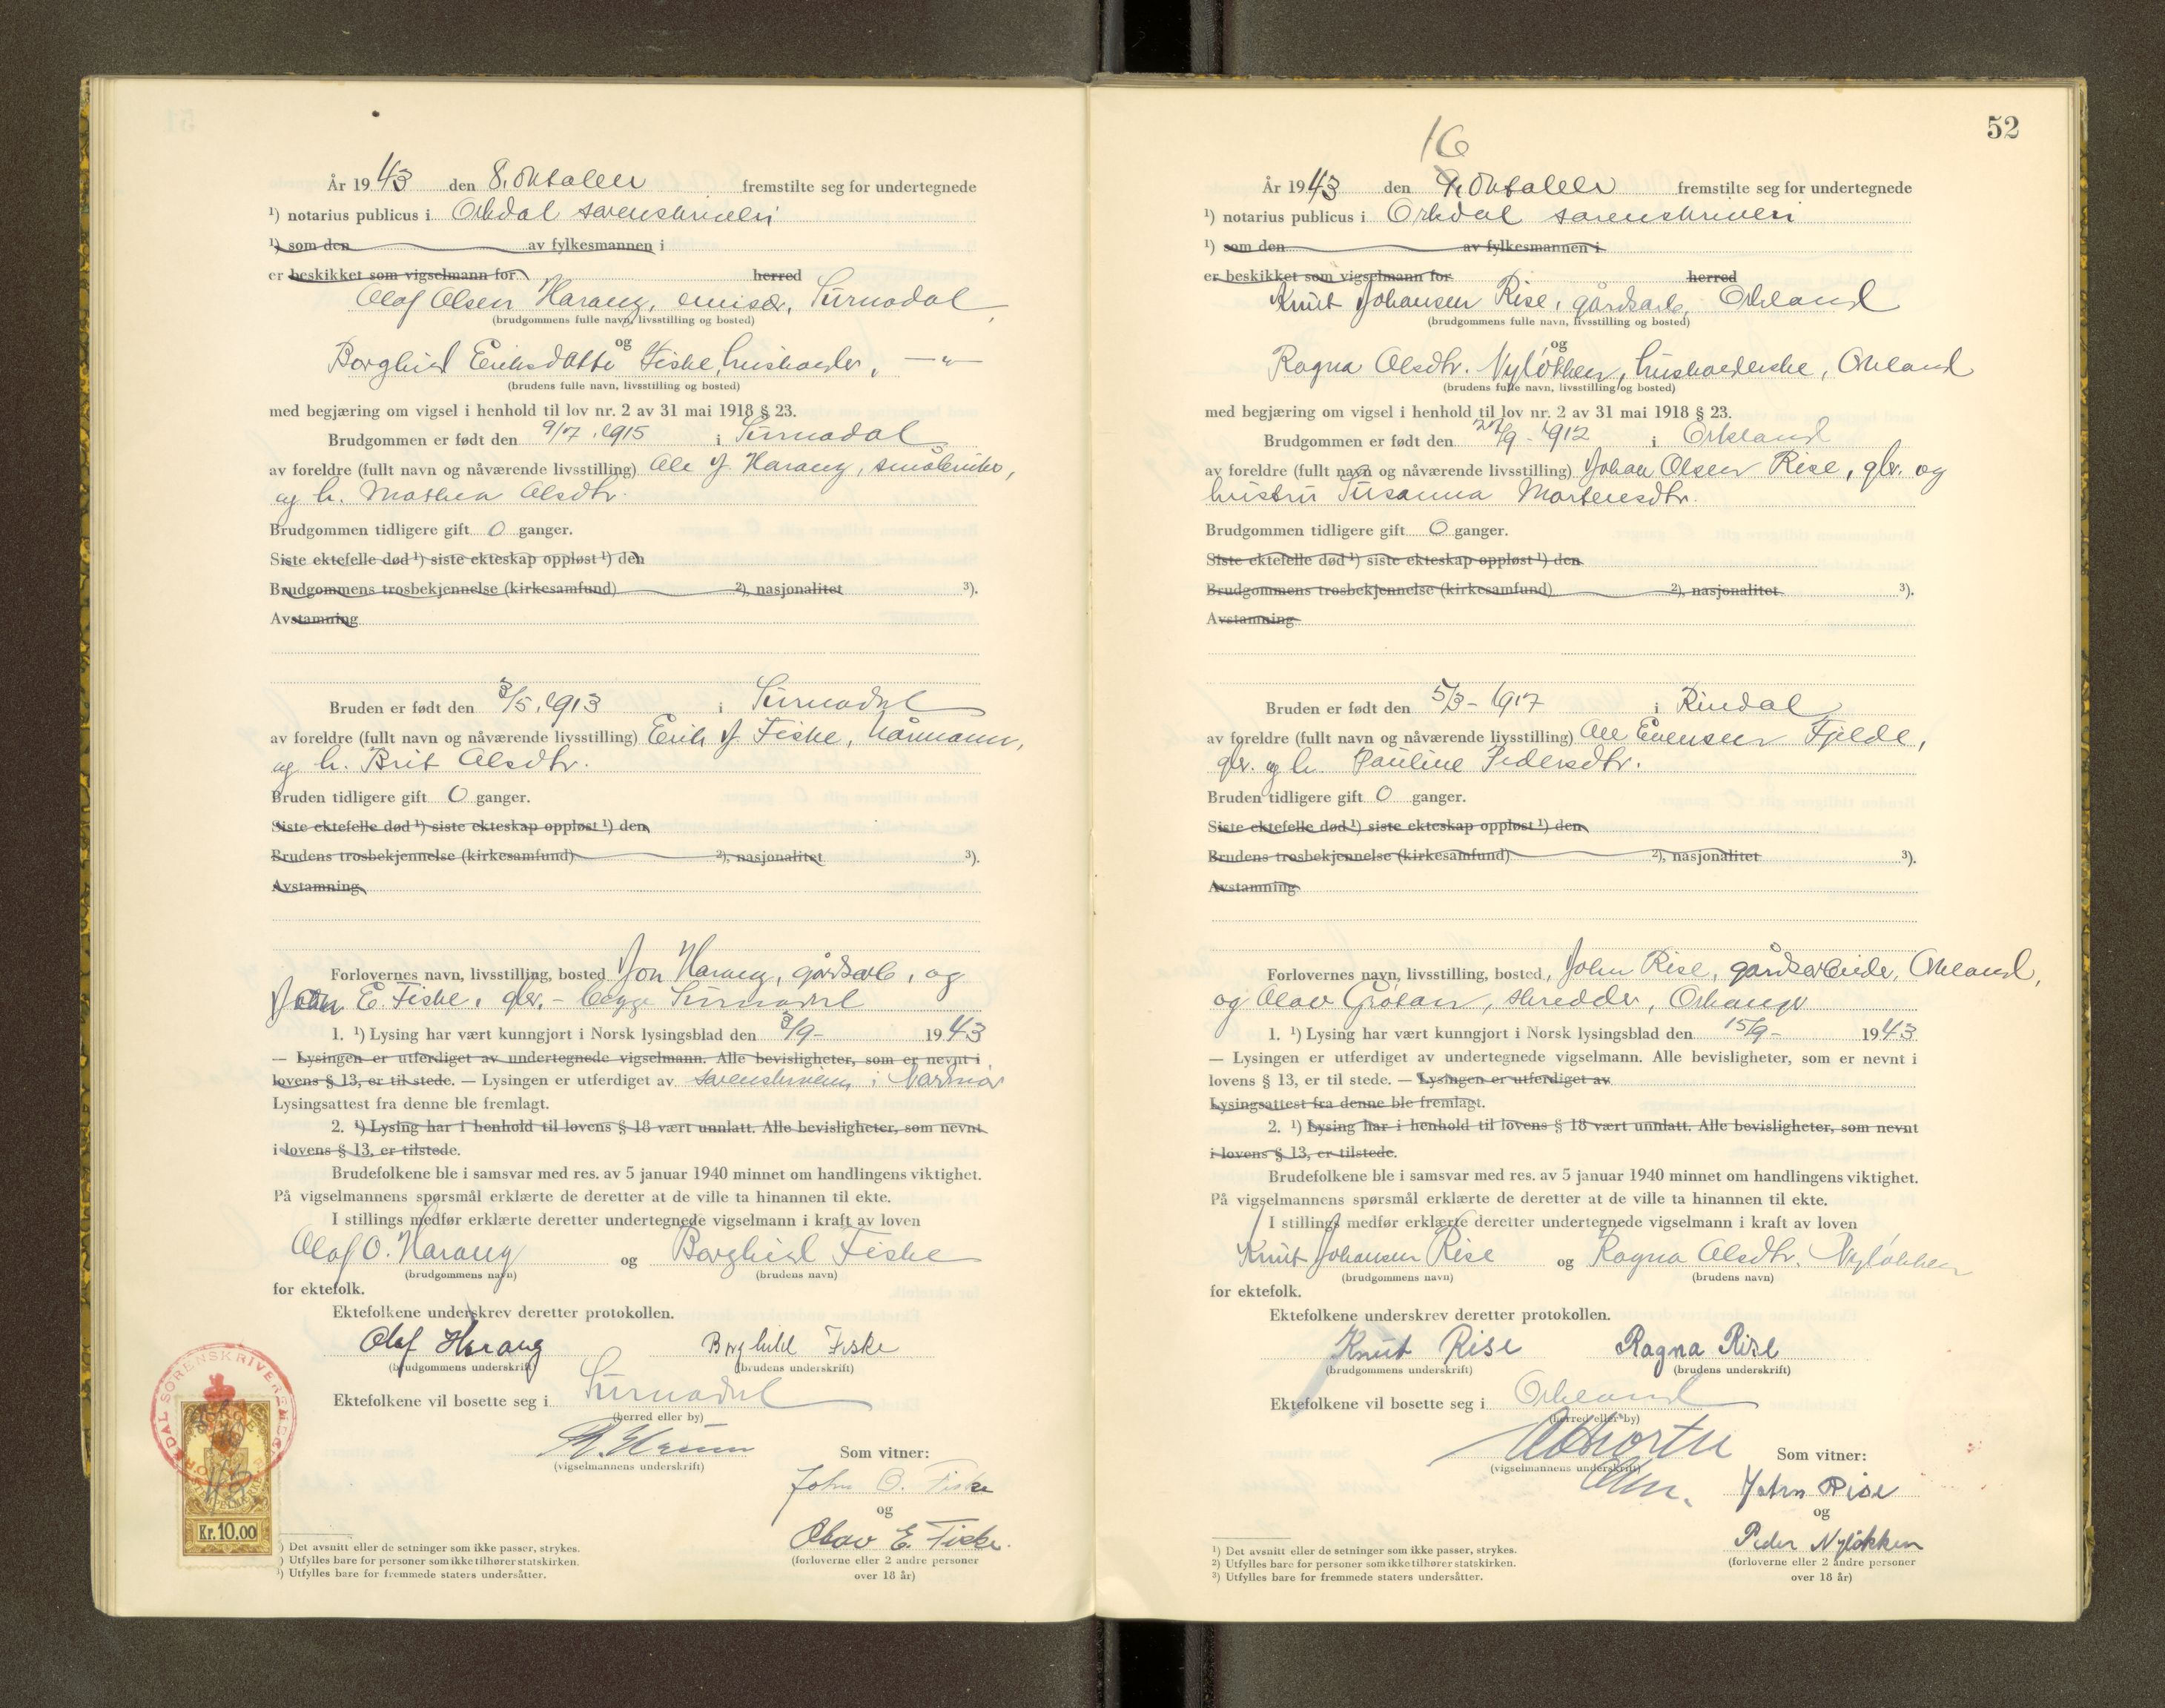 År 1943 den 8. oktober fremstilte seg for undertegnede
¹) notarius publicus i Orkdal sorenskriveri
¹) som den av fylkesmannen i
er beskikket som vigselmann for herred
Olaf Olsen Harang, emisær, Surnadal
(brudgommens fulle navn, livsstilling og bosted)
og
Borghild Eriksdatter Fiske, hushold., —"—
(brudens fulle navn, livsstilling og bosted)
med begjæring om vigsel i henhold til lov nr. 2 av 31 mai 1918 § 23.
Brudgommen er født den 9/7.1915 i Surnadal
av foreldre (fullt navn og nåværende livsstilling) Ole J. Harang, småbruker,
og h. Mathea Olsdtr.
Brudgommen tidligere gift 0 ganger.
Siste ektefelle død ¹) siste ekteskap oppløst ¹) den
Brudgommens trosbekjennelse (kirkesamfund) ²), nasjonalitet ³).
Avstamning
Bruden er født den 3/5.1913 i Surnadal
av foreldre (fullt navn og nåværende livsstilling) Erik J. Fiske, kårmann,
og h. Brit Olsdtr.
Bruden tidligere gift 0 ganger.
Siste ektefelle død ¹) siste ekteskap oppløst ¹) den
Brudens trosbekjennelse (kirkesamfund) ²), nasjonalitet ³).
Avstamning
Forlovernes navn, livsstilling, bosted Jon Harang, gårdsarb., og
John E. Fiske, gbr. - begge Surnadal
1. ¹) Lysing har vært kunngjort i Norsk lysingsblad den 3/9- 1943
— Lysingen er utferdiget av undertegnede vigselmann. Alle bevisligheter, som er nevnt i
lovens § 13, er til stede. — Lysingen er utferdiget av sorenskriveren i Nordmør
Lysingsattest fra denne ble fremlagt.
2. ¹) Lysing har i henhold til lovens § 18 vært unnlatt. Alle bevisligheter, som nevnt
i lovens § 13, er tilstede.
Brudefolkene ble i samsvar med res. av 5 januar 1940 minnet om handlingens viktighet.
På vigselmannens spørsmål erklærte de deretter at de ville ta hinannen til ekte.
I stillings medfør erklærte deretter undertegnede vigselmann i kraft av loven
Olaf O. Harang og Borghild Fiske
(brudgommens navn) (brudens navn)
for ektefolk.
Ektefolkene underskrev deretter protokollen.
Olaf Harang Borghild Fiske
(brudgommens underskrift) (brudens underskrift)
Ektefolkene vil bosette seg i Surnadal
(herred eller by)
(vigselmannens underskrift)
Som vitner:
John E. Fiske
og
Olav E. Fiske.
(forloverne eller 2 andre personer
over 18 år)
Kr. 10.00
¹) Det avsnitt eller de setninger som ikke passer, strykes.
²) Utfylles bare for personer som ikke tilhører statskirken.
³) Utfylles bare for fremmede staters undersåtter.
52
16
År 1943 den 9. oktober fremstilte seg for undertegnede
¹) notarius publicus i Orkdal sorenskriveri
¹) som den av fylkesmannen i
er beskikket som vigselmann for herred
Knut Johansen Rise, gårdsarb., Orkland
(brudgommens fulle navn, livsstilling og bosted)
og
Ragna Olsdtr. Nyløkken, husholderske, Orkland
(brudens fulle navn, livsstilling og bosted)
med begjæring om vigsel i henhold til lov nr. 2 av 31 mai 1918 § 23.
Brudgommen er født den /9-1912 i Orkland
av foreldre (fullt navn og nåværende livsstilling) Johan Olsen Rise, gbr. og
hustru Susanna Mortensdtr.
Brudgommen tidligere gift 0 ganger.
Siste ektefelle død ¹) siste ekteskap oppløst ¹) den
Brudgommens trosbekjennelse (kirkesamfund) ²), nasjonalitet ³).
Avstamning
Bruden er født den 5/3-1917 i Rindal
av foreldre (fullt navn og nåværende livsstilling) Ole Evensen Fjelde,
gbr. og h. Pauline Pedersdtr.
Bruden tidligere gift 0 ganger.
Siste ektefelle død ¹) siste ekteskap oppløst ¹) den
Brudens trosbekjennelse (kirkesamfund) ²), nasjonalitet ³).
Avstamning
Forlovernes navn, livsstilling, bosted, John Rise, gårdsarbeider, Orkland,
og Olav Grøtan, skredder, Orkanger
1. ¹) Lysing har vært kunngjort i Norsk lysingsblad den 15/9- 1943
— Lysingen er utferdiget av undertegnede vigselmann. Alle bevisligheter, som er nevnt i
lovens § 13, er til stede. — Lysingen er utferdiget av
Lysingsattest fra denne ble fremlagt.
2. ¹) Lysing har i henhold til lovens § 18 vært unnlatt. Alle bevisligheter, som nevnt
i lovens § 13, er tilstede.
Brudefolkene ble i samsvar med res. av 5 januar 1940 minnet om handlingens viktighet.
På vigselmannens spørsmål erklærte de deretter at de ville ta hinannen til ekte.
I stillings medfør erklærte deretter undertegnede vigselmann i kraft av loven
Knut Johansen Rise og Ragna Olsdtr. Nyløkken
(brudgommens navn) (brudens navn)
for ektefolk.
Ektefolkene underskrev deretter protokollen.
Knut Rise Ragna Rise
(brudgommens underskrift) (brudens underskrift)
Ektefolkene vil bosette seg i Orkland
(herred eller by)
(vigselmannens underskrift)
Som vitner:
John Rise
og
Peder Nyløkken
(forloverne eller 2 andre personer
over 18 år)
¹) Det avsnitt eller de setninger som ikke passer, strykes.
²) Utfylles bare for personer som ikke tilhører statskirken.
³) Utfylles bare for fremmede staters undersåtter.